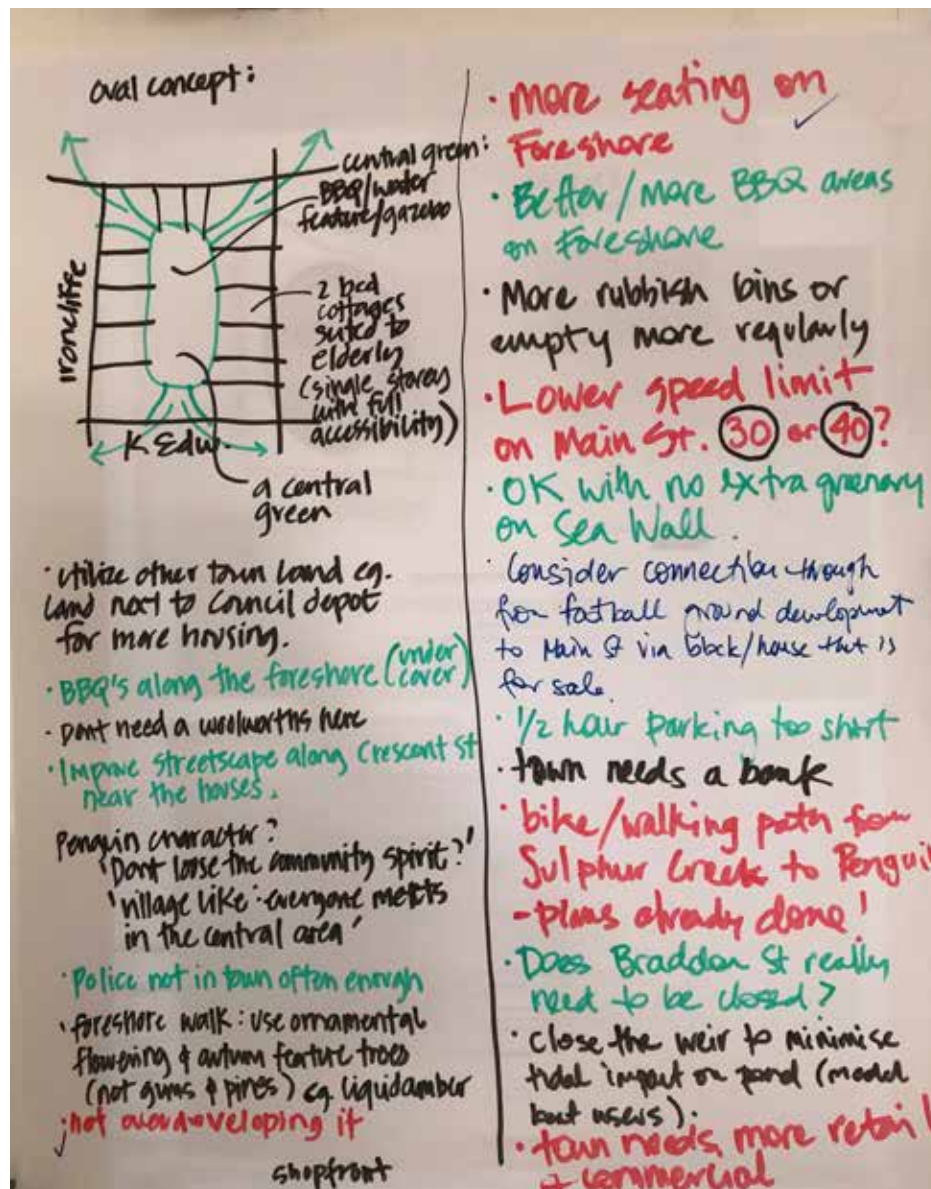 oval concept:
central green:
BBQ/water
feature/gazebo
Ironcliffe
2 bed
cottages
suited to
elderly
(single storey
with full
accessibility)
K Edw.
a central
green
· utilize other town land eg.
Land next to Council depot
for more housing.
· BBQ's along the foreshore (under
cover)
· Dont need a woolworths here
· Improve streetscape along Crescent St
near the houses.
Penguin character?
'Dont loose the community spirit?'
'village like: everyone meets
in the central area'
· Police not in town often enough
· foreshore walk: use ornamental
flowering & autum feature trees
(not gums & pines) eg liquidamber
· not overdeveloping it
shopfront
· more seating on
Foreshore
· Better/more BBQ areas
on Foreshore
· More rubbish bins or
empty more regularly
· Lower speed limit
on Main St. 30 or 40?
· OK with no extra greenery
on Sea Wall.
· Consider connection through
from football ground development
to Main St via block/house that is
for sale.
· 1/2 hour parking too short
· town needs a bank
· bike/walking path from
Sulphur Creek to Pengui
- plans already done!
· Does Braddon St really
need to be closed?
· close the weir to minimise
tidal impact on pond (model
boat users).
· town needs more retail
+ commercial